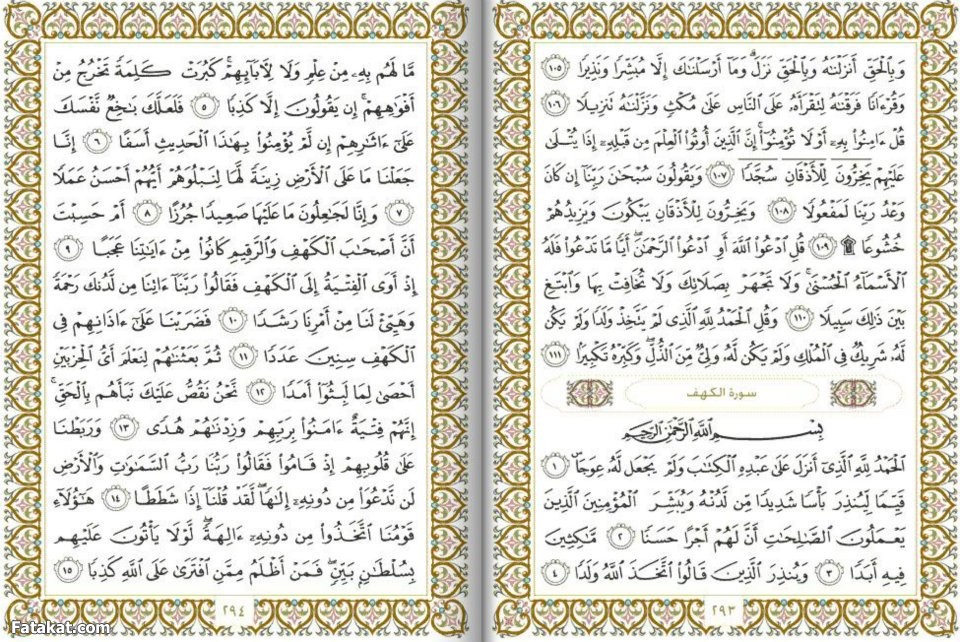 وَبِالْحَقِّ أَنزَلْنَاهُ وَبِالْحَقِّ نَزَلَ ۗ وَمَا أَرْسَلْنَاكَ إِلَّا مُبَشِّرًا وَنَذِيرًا ١٠٥
وَقُرْآنًا فَرَقْنَاهُ لِتَقْرَأَهُ عَلَى النَّاسِ عَلَىٰ مُكْثٍ وَنَزَّلْنَاهُ تَنزِيلًا ١٠٦
قُلْ ءَامِنُوا بِهِۦٓ أَوْ لَا تُؤْمِنُوٓا ۚ إِنَّ الَّذِينَ أُوتُوا الْعِلْمَ مِن قَبْلِهِۦٓ إِذَا يُتْلَىٰ
عَلَيْهِمْ يَخِرُّونَ لِلْأَذْقَانِ سُجَّدًا ١٠٧ وَيَقُولُونَ سُبْحَانَ رَبِّنَا إِن كَانَ
وَعْدُ رَبِّنَا لَمَفْعُولًا ١٠٨ وَيَخِرُّونَ لِلْأَذْقَانِ يَبْكُونَ وَيَزِيدُهُمْ
خُشُوعًا ۩ ١٠٩ قُلِ ادْعُوا اللَّهَ أَوِ ادْعُوا الرَّحْمَٰنَ ۖ أَيًّا مَّا تَدْعُوا فَلَهُ
الْأَسْمَاءُ الْحُسْنَىٰ ۚ وَلَا تَجْهَرْ بِصَلَاتِكَ وَلَا تُخَافِتْ بِهَا وَابْتَغِ
بَيْنَ ذَٰلِكَ سَبِيلًا ١١٠ وَقُلِ الْحَمْدُ لِلَّهِ الَّذِي لَمْ يَتَّخِذْ وَلَدًا وَلَمْ يَكُن
لَّهُ شَرِيكٌ فِي الْمُلْكِ وَلَمْ يَكُن لَّهُ وَلِيٌّ مِّنَ الذُّلِّ ۖ وَكَبِّرْهُ تَكْبِيرًا ١١١
سورة الكهف
بِسْمِ اللَّهِ الرَّحْمَٰنِ الرَّحِيمِ
الْحَمْدُ لِلَّهِ الَّذِي أَنزَلَ عَلَىٰ عَبْدِهِ الْكِتَابَ وَلَمْ يَجْعَل لَّهُ عِوَجًا ۜ ١
قَيِّمًا لِّيُنذِرَ بَأْسًا شَدِيدًا مِّن لَّدُنْهُ وَيُبَشِّرَ الْمُؤْمِنِينَ الَّذِينَ
يَعْمَلُونَ الصَّالِحَاتِ أَنَّ لَهُمْ أَجْرًا حَسَنًا ٢ مَّاكِثِينَ
فِيهِ أَبَدًا ٣ وَيُنذِرَ الَّذِينَ قَالُوا اتَّخَذَ اللَّهُ وَلَدًا ٤
٢٩٣
مَّا لَهُم بِهِۦ مِنْ عِلْمٍ وَلَا لِآبَائِهِمْ ۚ كَبُرَتْ كَلِمَةً تَخْرُجُ مِنْ
أَفْوَاهِهِمْ ۚ إِن يَقُولُونَ إِلَّا كَذِبًا ٥ فَلَعَلَّكَ بَاخِعٌ نَّفْسَكَ
عَلَىٰ ءَاثَارِهِمْ إِن لَّمْ يُؤْمِنُوا بِهَٰذَا الْحَدِيثِ أَسَفًا ٦ إِنَّا
جَعَلْنَا مَا عَلَى الْأَرْضِ زِينَةً لَّهَا لِنَبْلُوَهُمْ أَيُّهُمْ أَحْسَنُ عَمَلًا
٧ وَإِنَّا لَجَاعِلُونَ مَا عَلَيْهَا صَعِيدًا جُرُزًا ٨ أَمْ حَسِبْتَ
أَنَّ أَصْحَابَ الْكَهْفِ وَالرَّقِيمِ كَانُوا مِنْ ءَايَاتِنَا عَجَبًا ٩
إِذْ أَوَى الْفِتْيَةُ إِلَى الْكَهْفِ فَقَالُوا رَبَّنَا ءَاتِنَا مِن لَّدُنكَ رَحْمَةً
وَهَيِّئْ لَنَا مِنْ أَمْرِنَا رَشَدًا ١٠ فَضَرَبْنَا عَلَىٰ ءَاذَانِهِمْ فِي
الْكَهْفِ سِنِينَ عَدَدًا ١١ ثُمَّ بَعَثْنَاهُمْ لِنَعْلَمَ أَيُّ الْحِزْبَيْنِ
أَحْصَىٰ لِمَا لَبِثُوا أَمَدًا ١٢ نَّحْنُ نَقُصُّ عَلَيْكَ نَبَأَهُم بِالْحَقِّ ۚ
إِنَّهُمْ فِتْيَةٌ ءَامَنُوا بِرَبِّهِمْ وَزِدْنَاهُمْ هُدًى ١٣ وَرَبَطْنَا
عَلَىٰ قُلُوبِهِمْ إِذْ قَامُوا فَقَالُوا رَبُّنَا رَبُّ السَّمَاوَاتِ وَالْأَرْضِ
لَن نَّدْعُوَا مِن دُونِهِۦٓ إِلَٰهًا ۖ لَّقَدْ قُلْنَا إِذًا شَطَطًا ١٤ هَٰؤُلَاءِ
قَوْمُنَا اتَّخَذُوا مِن دُونِهِۦٓ ءَالِهَةً ۖ لَّوْلَا يَأْتُونَ عَلَيْهِم
بِسُلْطَانٍ بَيِّنٍ ۖ فَمَنْ أَظْلَمُ مِمَّنِ افْتَرَىٰ عَلَى اللَّهِ كَذِبًا ١٥
٢٩٤
Fatakat.com